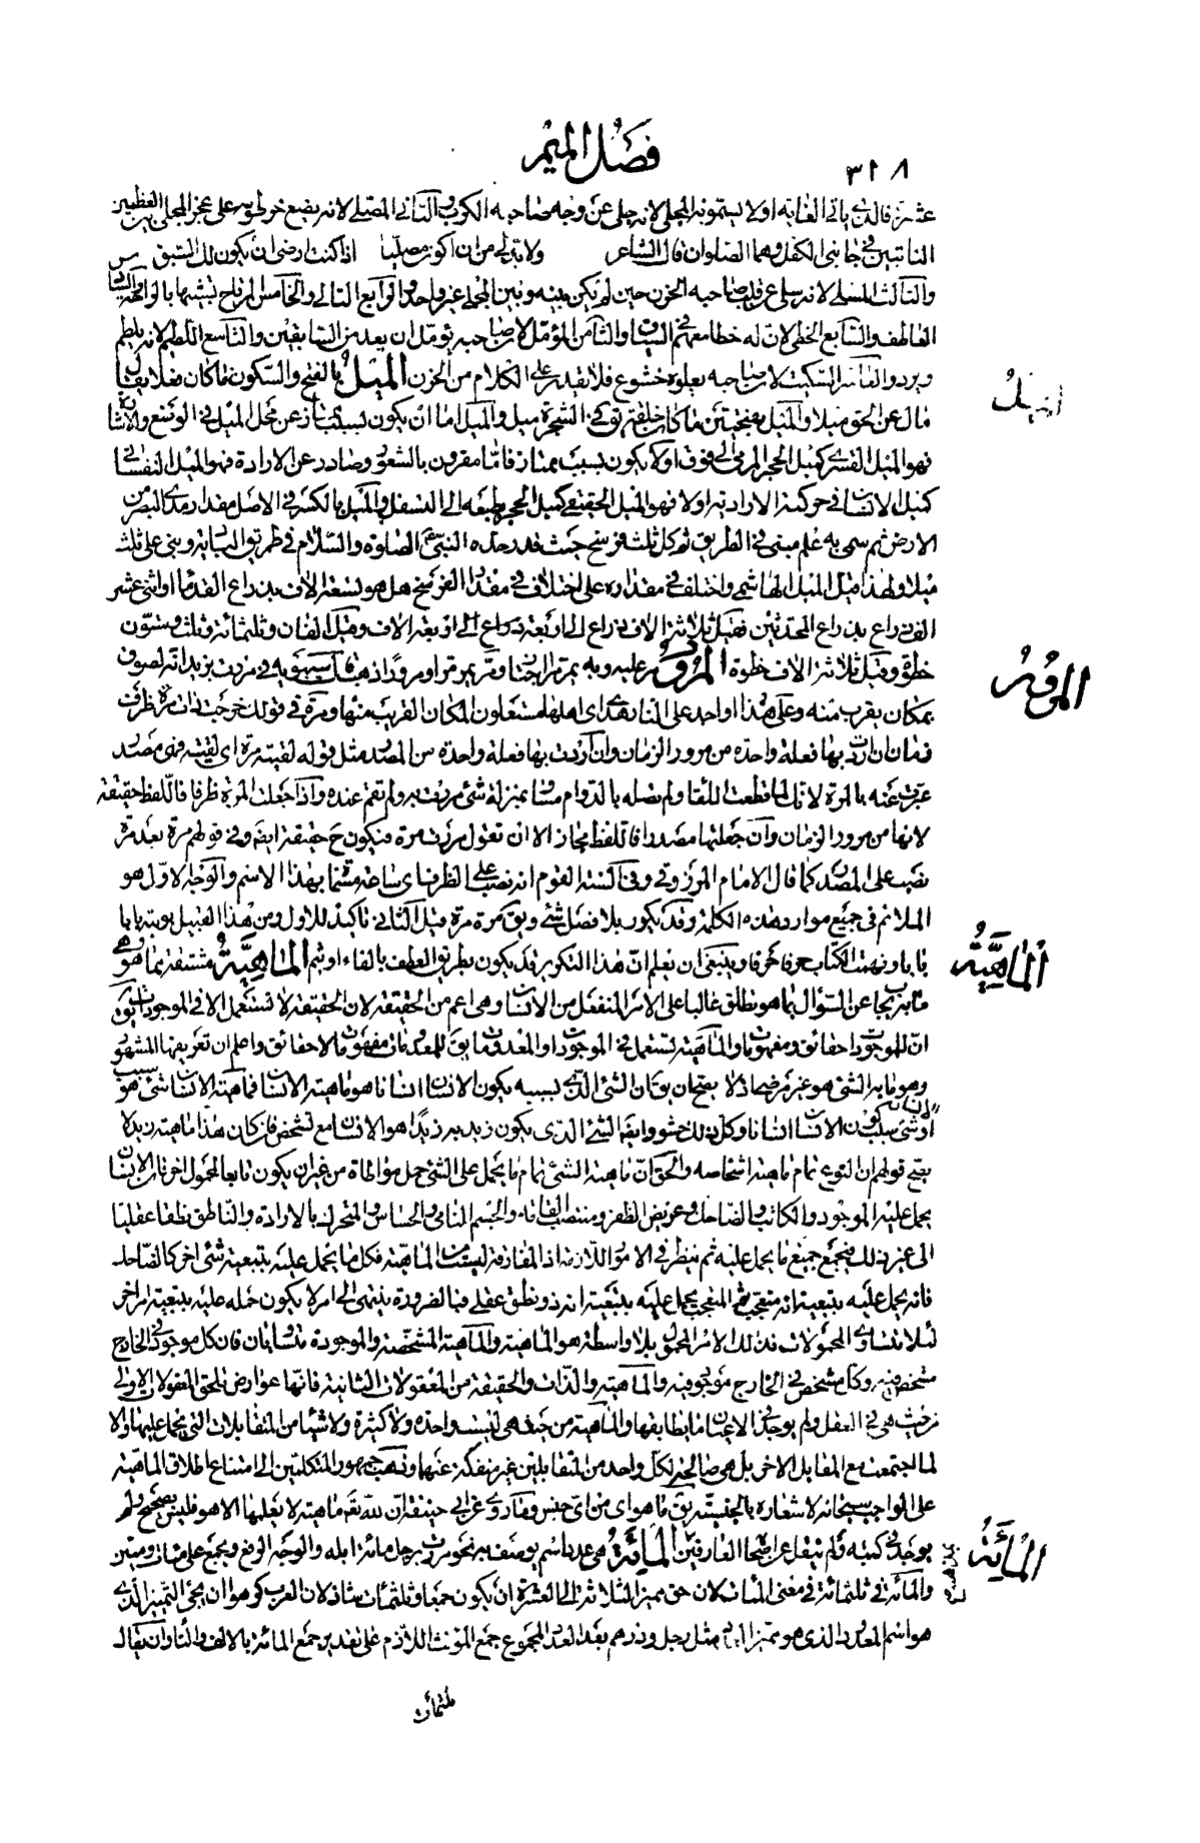 فصل الميم
٣١٨
عشرة فالذي ياتي الغاية اولا يسمونه المجلي لانه جلى عن وجه صاحبه الكرب والثاني المصلي لانه يضع خرطومه على عجز المجلي بين العظمين
الناتيين في جانبي الكفل وهما الصلوان قال الشاعر ولا بد لي من ان اكون مصليا اذا كنت ارضى ان يكون لك السبق
والثالث المسلي لانه سلى عن قلب صاحبه الحزن حين لم يكن بينه وبين المجلي غير واحد والرابع التالي والخامس المرتاح تشبيها بالواحد والسادس
العاطف والسابع الحظي لان له حظا معهم في السباق والثامن المؤمل لان صاحبه يؤمل ان يعد من السابقين والتاسع اللطيم لانه يلطم
ويرد والعاشر السكيت لان صاحبه يعلوه خشوع فلا يقدر على الكلام من الحزن الميل بالفتح والسكون ما كان فعلا يقال
مال عن الحق ميلا والميل بفتحتين ما كان خلقة يق في الشجرة ميل والميل اما ان يكون بسبب ممتاز عن محل الميل في الوضع والاشارة
فهو الميل القسري كميل الحجر المرمي الى فوق او لا يكون بسبب ممتاز فاما مقرون بالشعور وصادر عن الارادة فهو الميل النفساني
كميل الانسان في حركته الارادية او لا فهو الميل الحقيقي كميل الحجر بطبعه الى السفل والميل بالكسر في الاصل مقدار مدى البصر من
الارض ثم سمي به علم مبني في الطريق ثم كل ثلث فرسخ حيث قدر حده النبي عليه الصلوة والسلام في طريق البادية وبنى على ثلث
ميلا ولهذا قيل الميل الهاشمي واختلف في مقداره على اختلاف في مقدار الفرسخ هل هو تسعة الاف بذراع القدما او اثنى عشر
الف ذراع بذراع المحدثين فقيل ثلاثة الاف ذراع الى اربعة ذراع الى اربعة الاف وقيل الفان وثلثمائة وثلث وستون
خطوة وقيل ثلاثة الاف خطوة المرور مر عليه وبه يمر مرا اي اجتاز ومر يمر مرا ومرورا ذهب قال سيبويه في مررت بزيد انه لصوق
بمكان يقرب منه وعلى هذا او اجد على النار هدى اي اهلها مستعلون المكان القريب منها ومرة في قولك خرجت ذات مرة ظرف
زمان ان اردت بها فعلة واحدة من مرور الزمان وان اردت بها فعلة واحدة من المصدر مثل قوله لقيته مرة اي لقية فهي مصدر
عبرت عنه بالمرة لانك لما قطعت اللقا ولم تصله بالدوام صار بمنزلة شئ مررت به ولم تقم عنده واذا جعلت المرة ظرفا فاللفظ حقيقة
لانها من مرور الزمان وان جعلتها مصدرا فاللفظ مجاز الا ان تقول مررت مرة فيكون ح حقيقة ايضا وفي قولهم مرة بعد مرة
نصب على المصدر كما قال الامام المرزوقي وفي السنة القوم انه نصب على الظرف اي ساعة مسما بهذا الاسم والوجه الاول هو
الملائم في جميع موارد هذه الكلمة وقد يكون بلا فصل شئ ويق كرة مرة قيل الثاني تاكيد للاول ومن هذا القبيل بوبته بابا
بابا وفهمت الكتاب حرفا حرفا وينبغي ان يعلم ان هذا التكرير قد يكون بطريق العطف بالفاء او بثم الماهية مشتقة عما هو وهي
ما به يجاب عن السؤال بما هو تطلق غالبا على الامر المتعقل من الانسان وهي اعم من الحقيقة لان الحقيقة لا تستعمل الا في الموجودات يق
ان للموجودات حقائق ومفهومات والماهية تستعمل في الموجودات والمعدومات يق للمعدومات مفهومات لا حقائق واعلم ان تعريفها المشهور
وهو ما به الشئ هو غير مرضي اذ لا يصح ان يق ان الشئ الذي بسببه يكون الانسان انسانا هو ماهية الانسان فماهية الانسان شئ هو سبب
او شئ بسببه يكون الانسان انسانا وكل ذلك حشو وايضا الشئ الذي يكون زيد به زيدا هو الانسان مع تشخص فان كان هذا ماهية زيد لا
يصح قولهم ان النوع تمام ماهية اشخاصه والحق ان ماهية الشئ تمام ما يحمل على الشئ حمل مواطاة من غير ان يكون تابعا لمحمول اخر فان الانسان
يحمل عليه الموجود والكاتب والضاحك وعريض الظفر ومنتصب القامة والجسم النامي والحساس والمتحرك بالارادة والناطق نطقا عقليا
الى غير ذلك فيجمع جميع ما يحمل عليه ثم ينظر في الامور اللازمة اذ المفارقة ليست من الماهية فكل ما يحمل عليه بتبعية شئ اخر كالضاحك
فانه يحمل عليه بتبعية انه متعجب ثم المتعجب يحمل عليه بتبعية انه ذو نطق عقلي فبالضرورة ينتهي الى امر لا يكون حمله عليه بتبعية امر اخر
لئلا تتساوى المحمولات فذلك الامر المحمول بلا واسطة هو الماهية والماهية المشخصة والموجودة متساويان فان كل موجود في الخارج
مشخص فيه وكل مشخص في الخارج موجود فيه والماهية والذات والحقيقة من المعقولات الثانية فانها عوارض تلحق المعقولات الاولى
من حيث هي في العقل ولم يوجد في الاعيان ما يطابقها والماهية من حيث هي ليست واحدة ولا كثيرة ولا شيئا من المتقابلات التي يحمل عليها والا
لما اجتمعت مع المقابل الاخر بل هي صالحة لكل واحد من المتقابلين غير منفكة عنها وذهب جمهور المتكلمين الى امتناع اطلاق الماهية
على الواجب سبحانه لاشعاره بالجنسية يق ما هو اي من اي جنس وما روى عن ابي حنيفة ان لله تعالى ماهية لا يعلمها الا هو فليس بصحيح ولم
يوجد في كتبه ولم ينقل عن اصحابه العارفين المائة هي عدد اسم يوصف به نحو مررت برجل مائة ابله والوجه الرفع ويجمع على مئات ومئين
والمائة في ثلثمائة في معنى المئات لان حق مميز الثلاثة الى العشرة ان يكون جمعا وثلثمئات شاذ لان العرب كرهوا ان يجئ التمييز الذي
هو اسم المعدود الذي هو مميز المائة مثل رجل ودرهم بعد العدد المجموع جمع المؤنث اللازم على تقدير جمع المائة بالالف والتاء وان يقال
الميل
المرور
الماهية
المائة
ثلثمائة